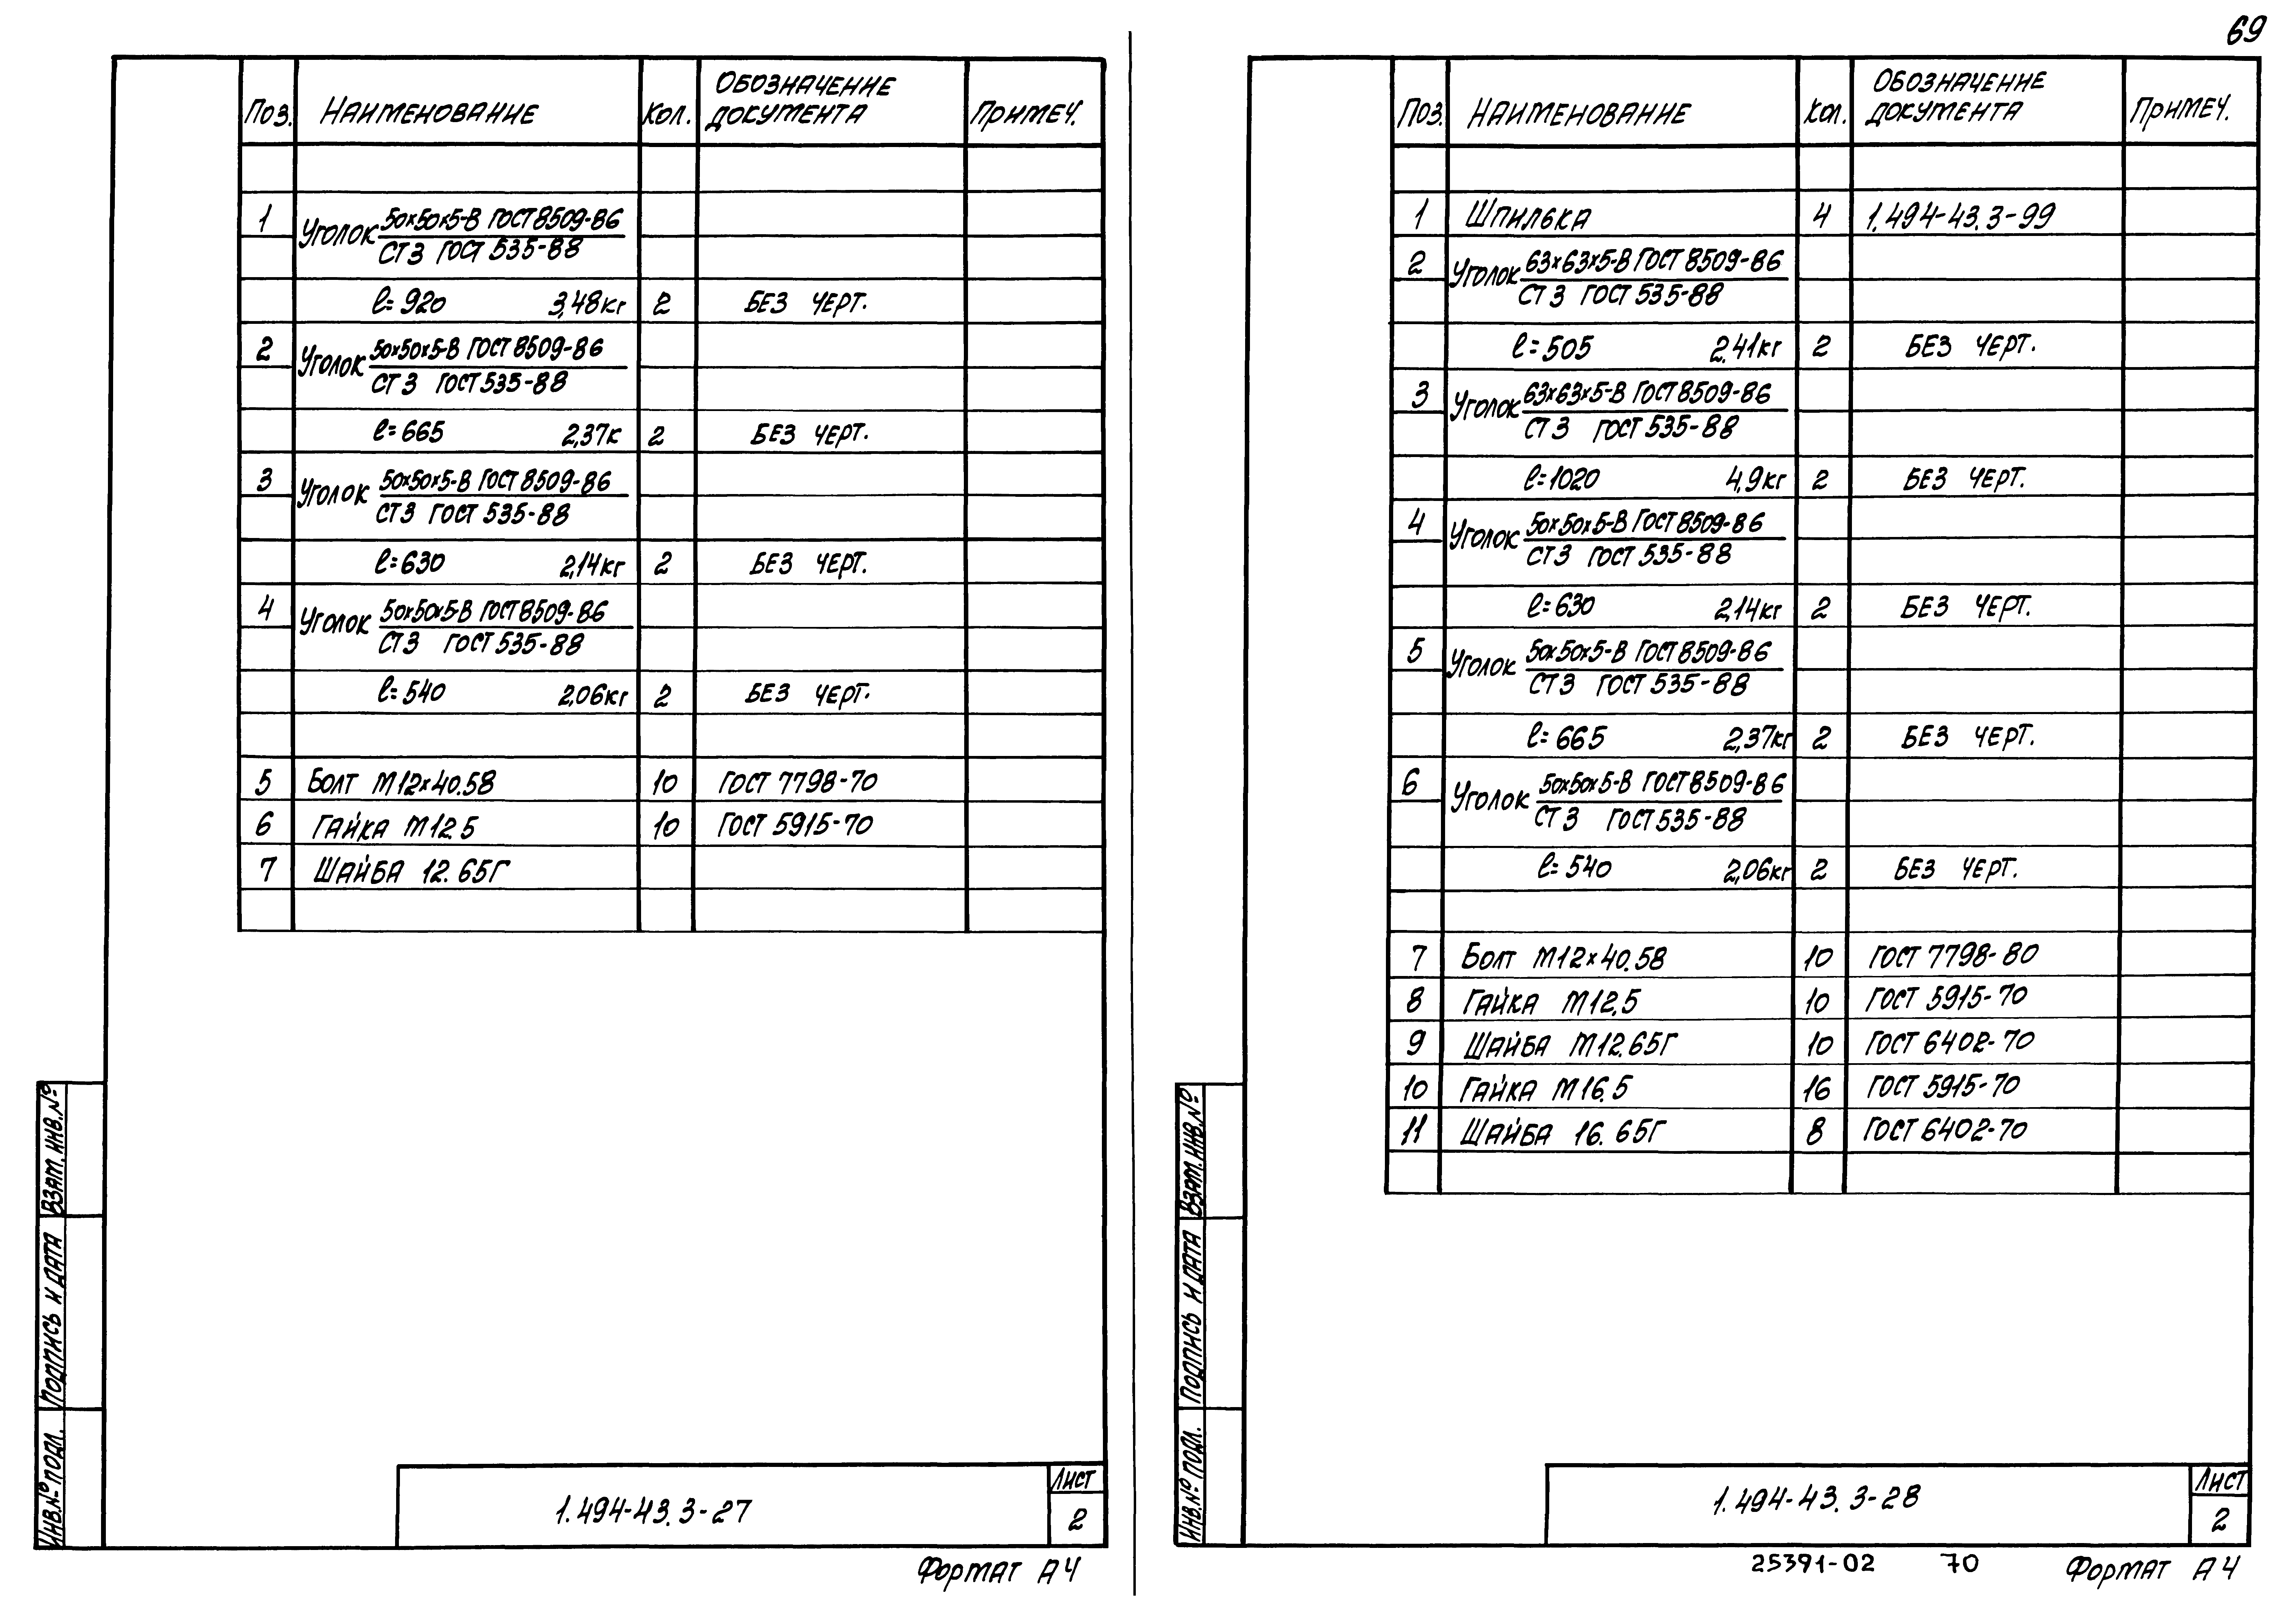 69
Поз. Наименование Кол. Обозначение документа Примеч.
1 Уголок 50х50х5-В ГОСТ 8509-86
Ст 3 ГОСТ 535-88
ℓ=920 3,48кг 2 Без черт.
2 Уголок 50х50х5-В ГОСТ 8509-86
Ст 3 ГОСТ 535-88
ℓ=665 2,37к 2 Без черт.
3 Уголок 50х50х5-В ГОСТ 8509-86
Ст 3 ГОСТ 535-88
ℓ=630 2,14кг 2 Без черт.
4 Уголок 50х50х5-В ГОСТ 8509-86
Ст 3 ГОСТ 535-88
ℓ=540 2,06кг 2 Без черт.
5 Болт М12х40.58 10 ГОСТ 7798-70
6 Гайка М12.5 10 ГОСТ 5915-70
7 Шайба 12.65Г
Взам.инв.№
Подпись и дата
Инв.№ подл.
1.494-43.3-27
Лист
2
Формат А4
Поз. Наименование Кол. Обозначение документа Примеч.
1 Шпилька 4 1.494-43.3-99
2 Уголок 63х63х5-В ГОСТ 8509-86
Ст 3 ГОСТ 535-88
ℓ=505 2.41кг 2 Без черт.
3 Уголок 63х63х5-В ГОСТ 8509-86
Ст 3 ГОСТ 535-88
ℓ=1020 4,9кг 2 Без черт.
4 Уголок 50х50х5-В ГОСТ 8509-86
Ст 3 ГОСТ 535-88
ℓ=630 2,14кг 2 Без черт.
5 Уголок 50х50х5-В ГОСТ 8509-86
Ст 3 ГОСТ 535-88
ℓ=665 2,37кг 2 Без черт.
6 Уголок 50х50х5-В ГОСТ 8509-86
Ст 3 ГОСТ 535-88
ℓ=540 2,06кг 2 Без черт.
7 Болт М12х40.58 10 ГОСТ 7798-80
8 Гайка М12.5 10 ГОСТ 5915-70
9 Шайба М12.65Г 10 ГОСТ 6402-70
10 Гайка М16.5 16 ГОСТ 5915-70
11 Шайба 16.65Г 8 ГОСТ 6402-70
Взам.инв.№
Подпись и дата
Инв.№ подл.
1.494-43.3-28
Лист
2
25391-02 70 Формат А4